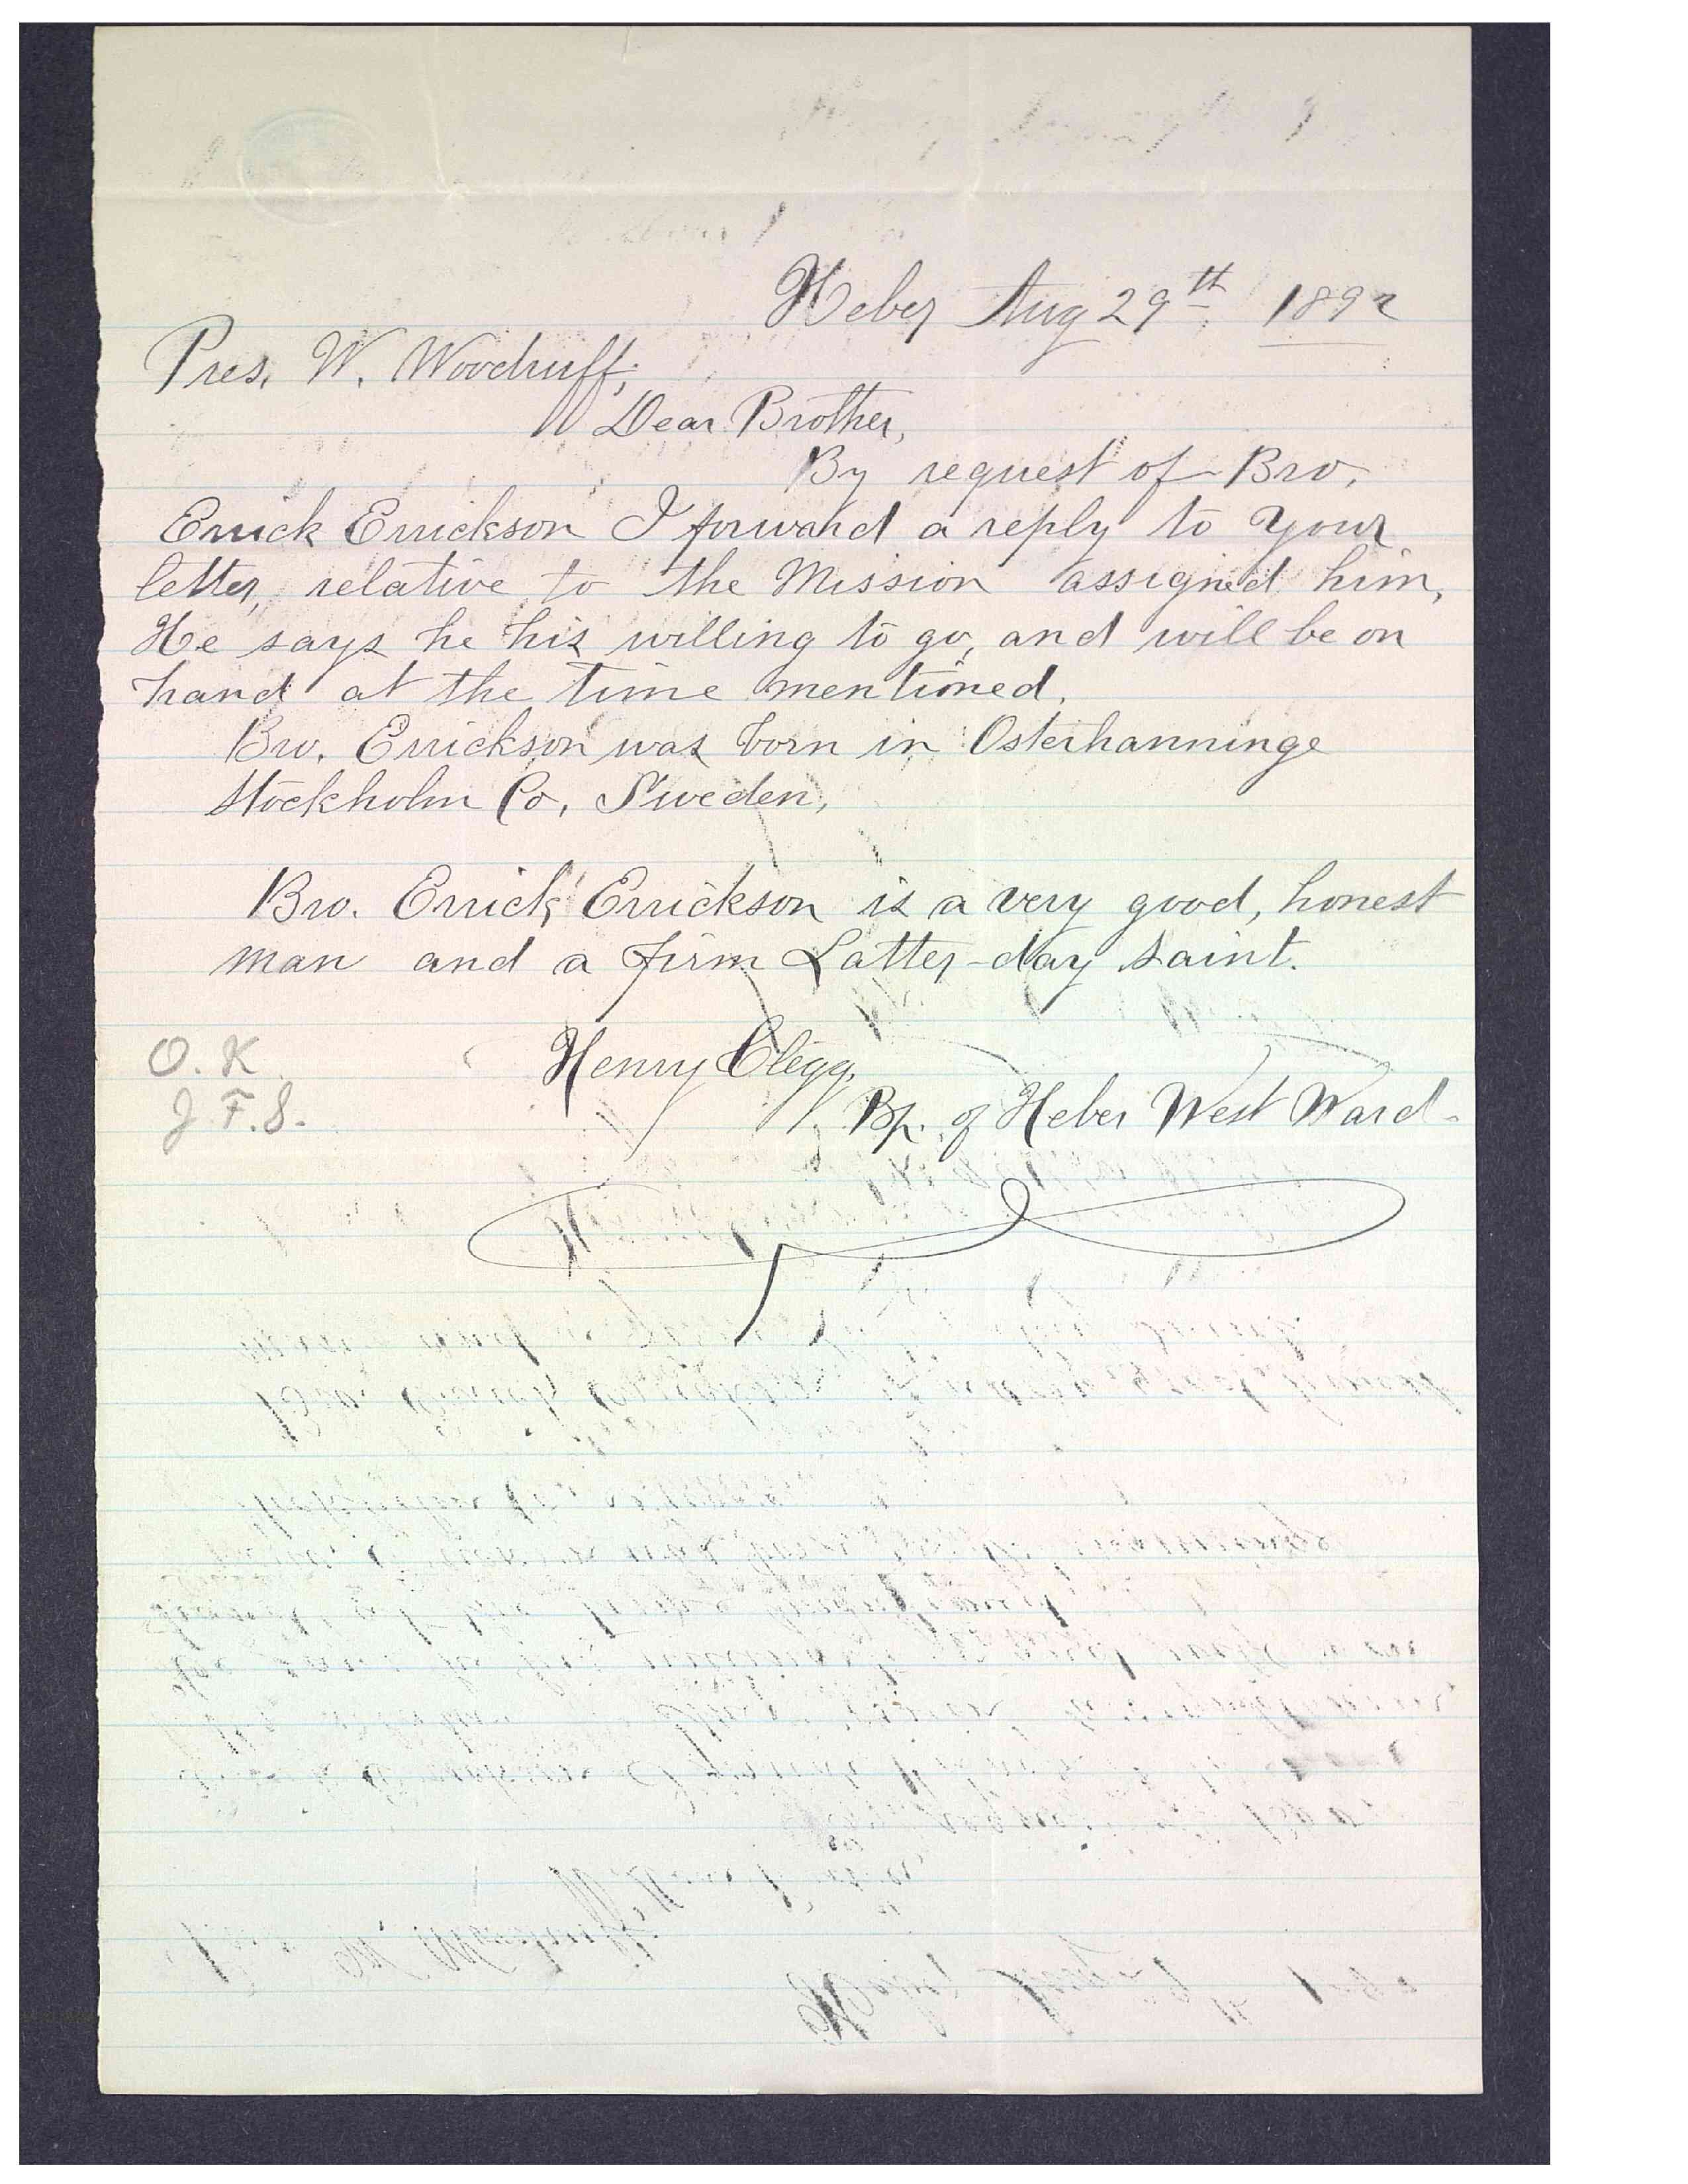 Heber Aug 29th, 1892
Pres. W. Woodruff;
Dear Brother,
By request of Bro.
Errick Errickson I forward a reply to your
letter, relative to the Mission assigned him,
He says he his willing to go, and will be on
hand at the time mentioned.
Bro. Errickson was born in Osterhanninge
Stockholm Co, Sweden,
Bro. Errick Errickson is a very good, honest
man and a firm Latter-day saint.
Henry Clegg,
Bp. of Heber West Ward-
O. K
J. F. S.